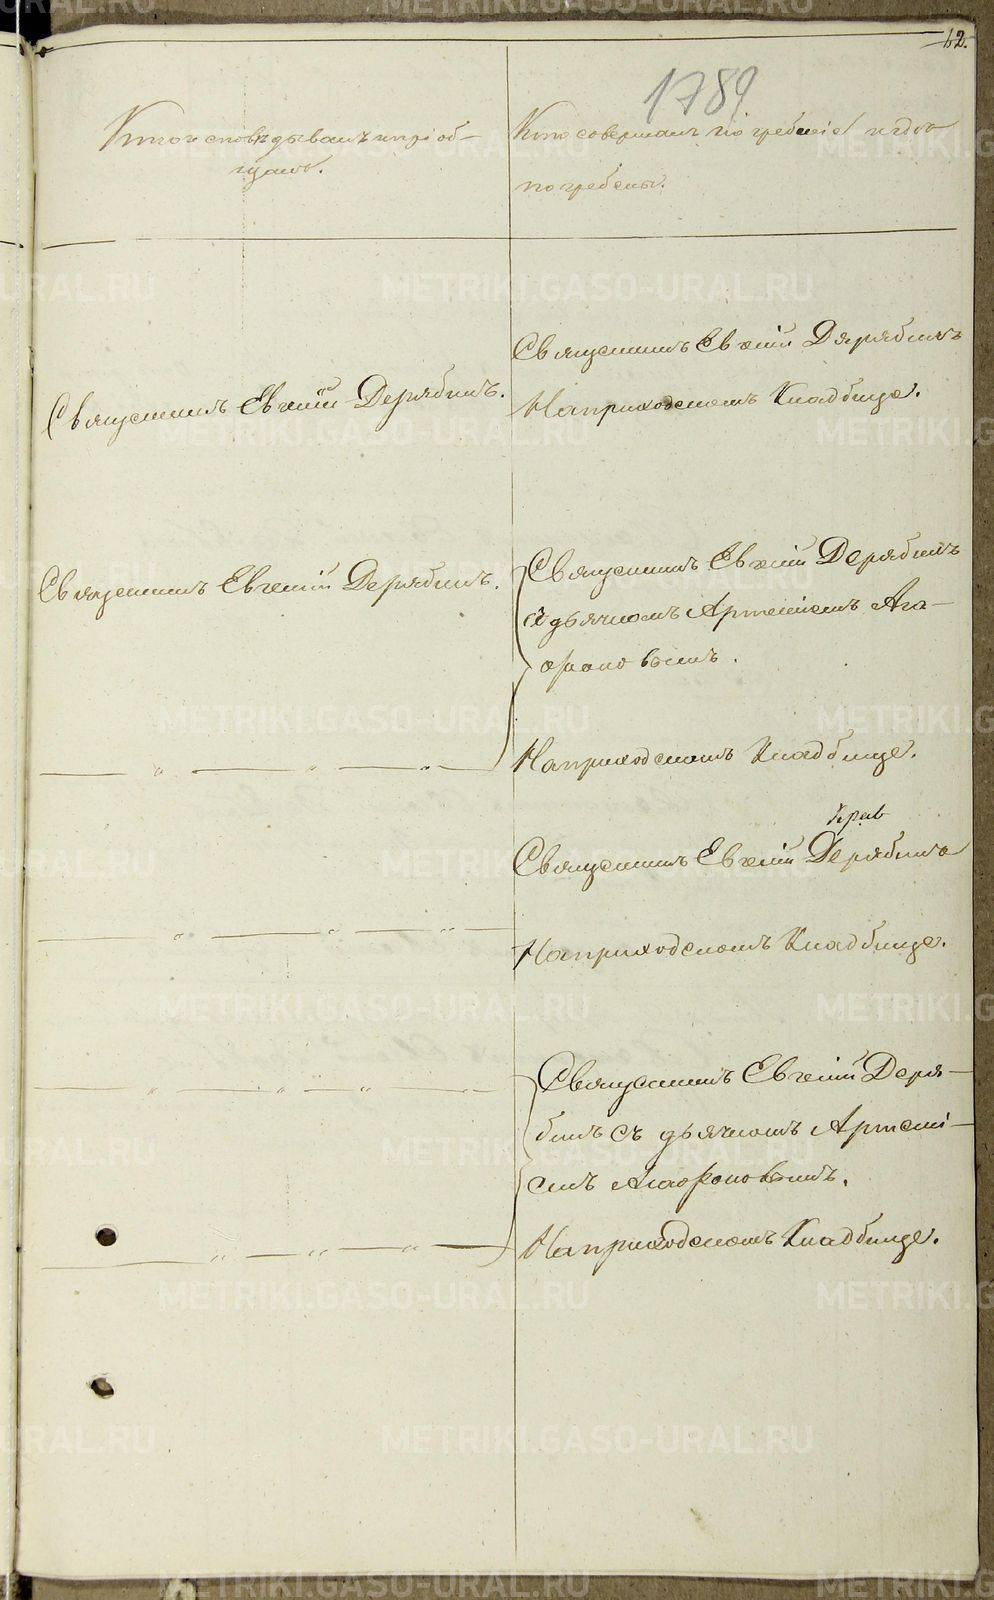 62.
1789
Кто исповѣдывалъ и пріоб-
щалъ.
Кто совершалъ погребеніе и гдѣ
погребены.
Священникъ Евгеній Дерябинъ
Священникъ Евгеній Дерябинъ.
На приходскомъ кладбище.
Священникъ Евгеній Дерябинъ
Священникъ Евгеній Дерябинъ.
съ дьячкомъ Артеміемъ Ага-
фоновымъ.
На приходскомъ кладбище.
Священникъ Евгеній Дерябинъ
На приходскомъ кладбище.
Священникъ Евгеній Деря-
бинъ съ дьячкомъ Артемі-
емъ Агафоновымъ.
На приходскомъ кладбище.
METRIKI.GASO-URAL.RU